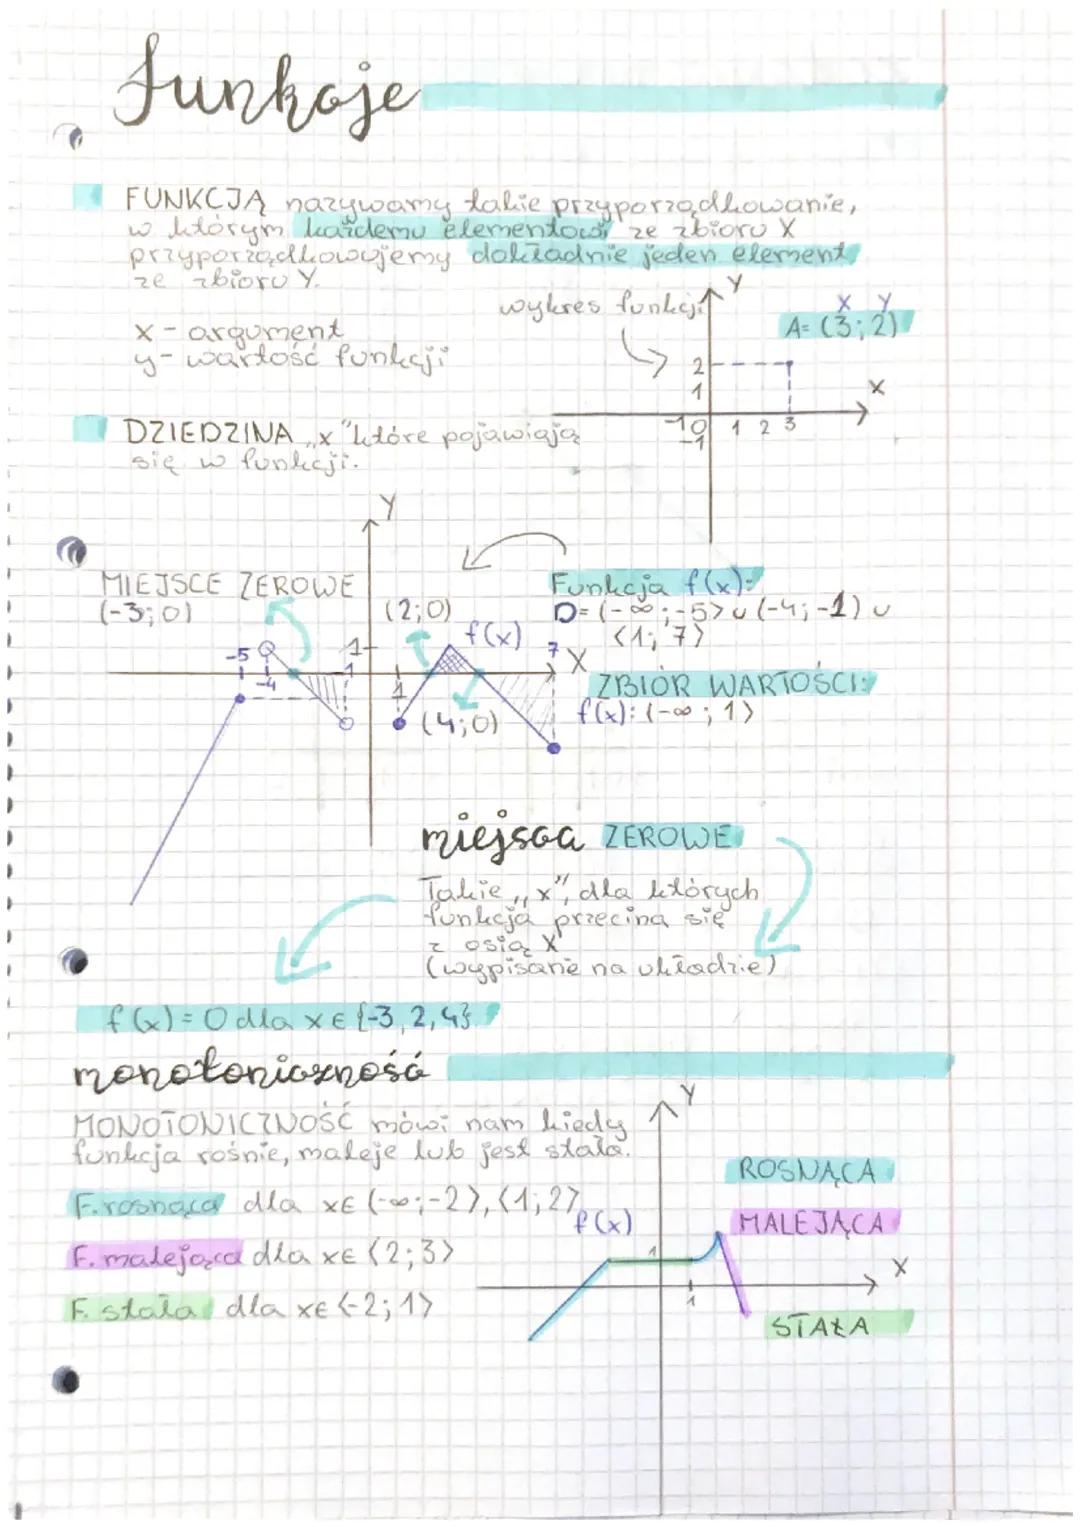 Funkcje
FUNKCJĄ nazywamy takie przyporządkowanie,
w którym każdemu elementowi ze zbioru X
przyporządkowujemy dokładnie jeden element
ze zbioru Y.
x - argument
y - wartość funkcji
wykres funkcji
Y
X Y
A= (3; 2)
2
1
X
-1 0 1 2 3
-1
DZIEDZINA „x" które pojawiają
się w funkcji.
Y
MIEJSCE ZEROWE
(-3; 0)
(2; 0)
f(x)
Funkcja f(x):
D= (-∞; -5> ∪ (-4; -1) ∪
<1; 7>
-5
-4
1
-1
1
7
X
(4; 0)
ZBIÓR WARTOŚCI:
f(x): (-∞; 1>
miejsca ZEROWE
Takie „x", dla których
funkcja przecina się
z osią X
(wypisane na układzie)
f(x) = 0 dla x∈{-3, 2, 4}
monotoniczność
MONOTONICZNOŚĆ mówi nam kiedy
funkcja rośnie, maleje lub jest stała.
F. rosnąca dla x∈ (-∞; -2>, <1; 2>
F. malejąca dla x∈ <2; 3>
F. stała dla x∈ <-2; 1>
Y
f(x)
1
1
X
ROSNĄCA
MALEJĄCA
STAŁA